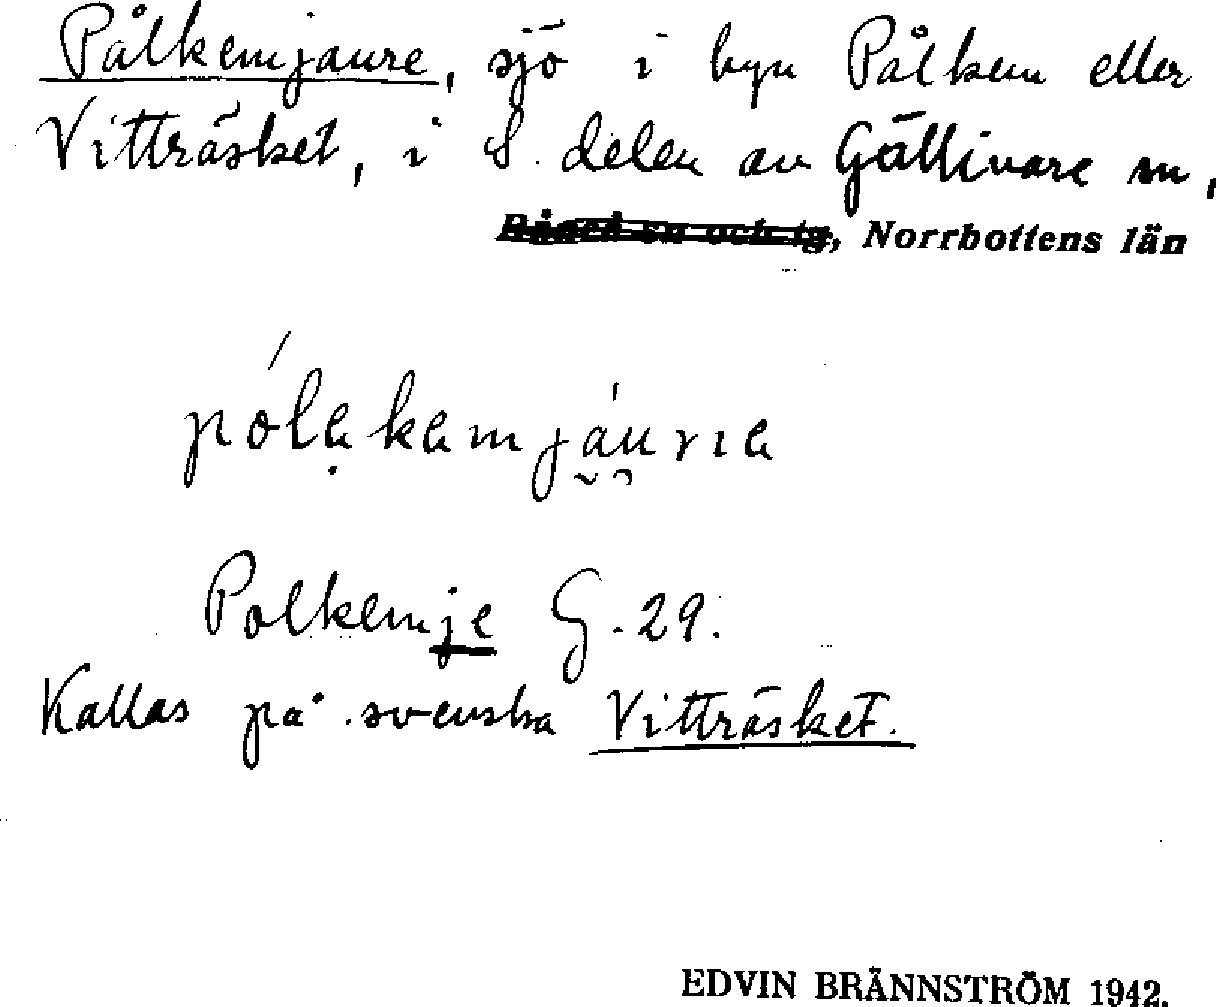 Pålkemjaure, sjö i byn Pålkem eller
Vitträsket, i S. delen av Gällivare sn,
Råneå sn och tg, Norrbottens län
Polkemje G. 29.
Kallas på svenska Vitträsket.
EDVIN BRÄNNSTRÖM 1942.